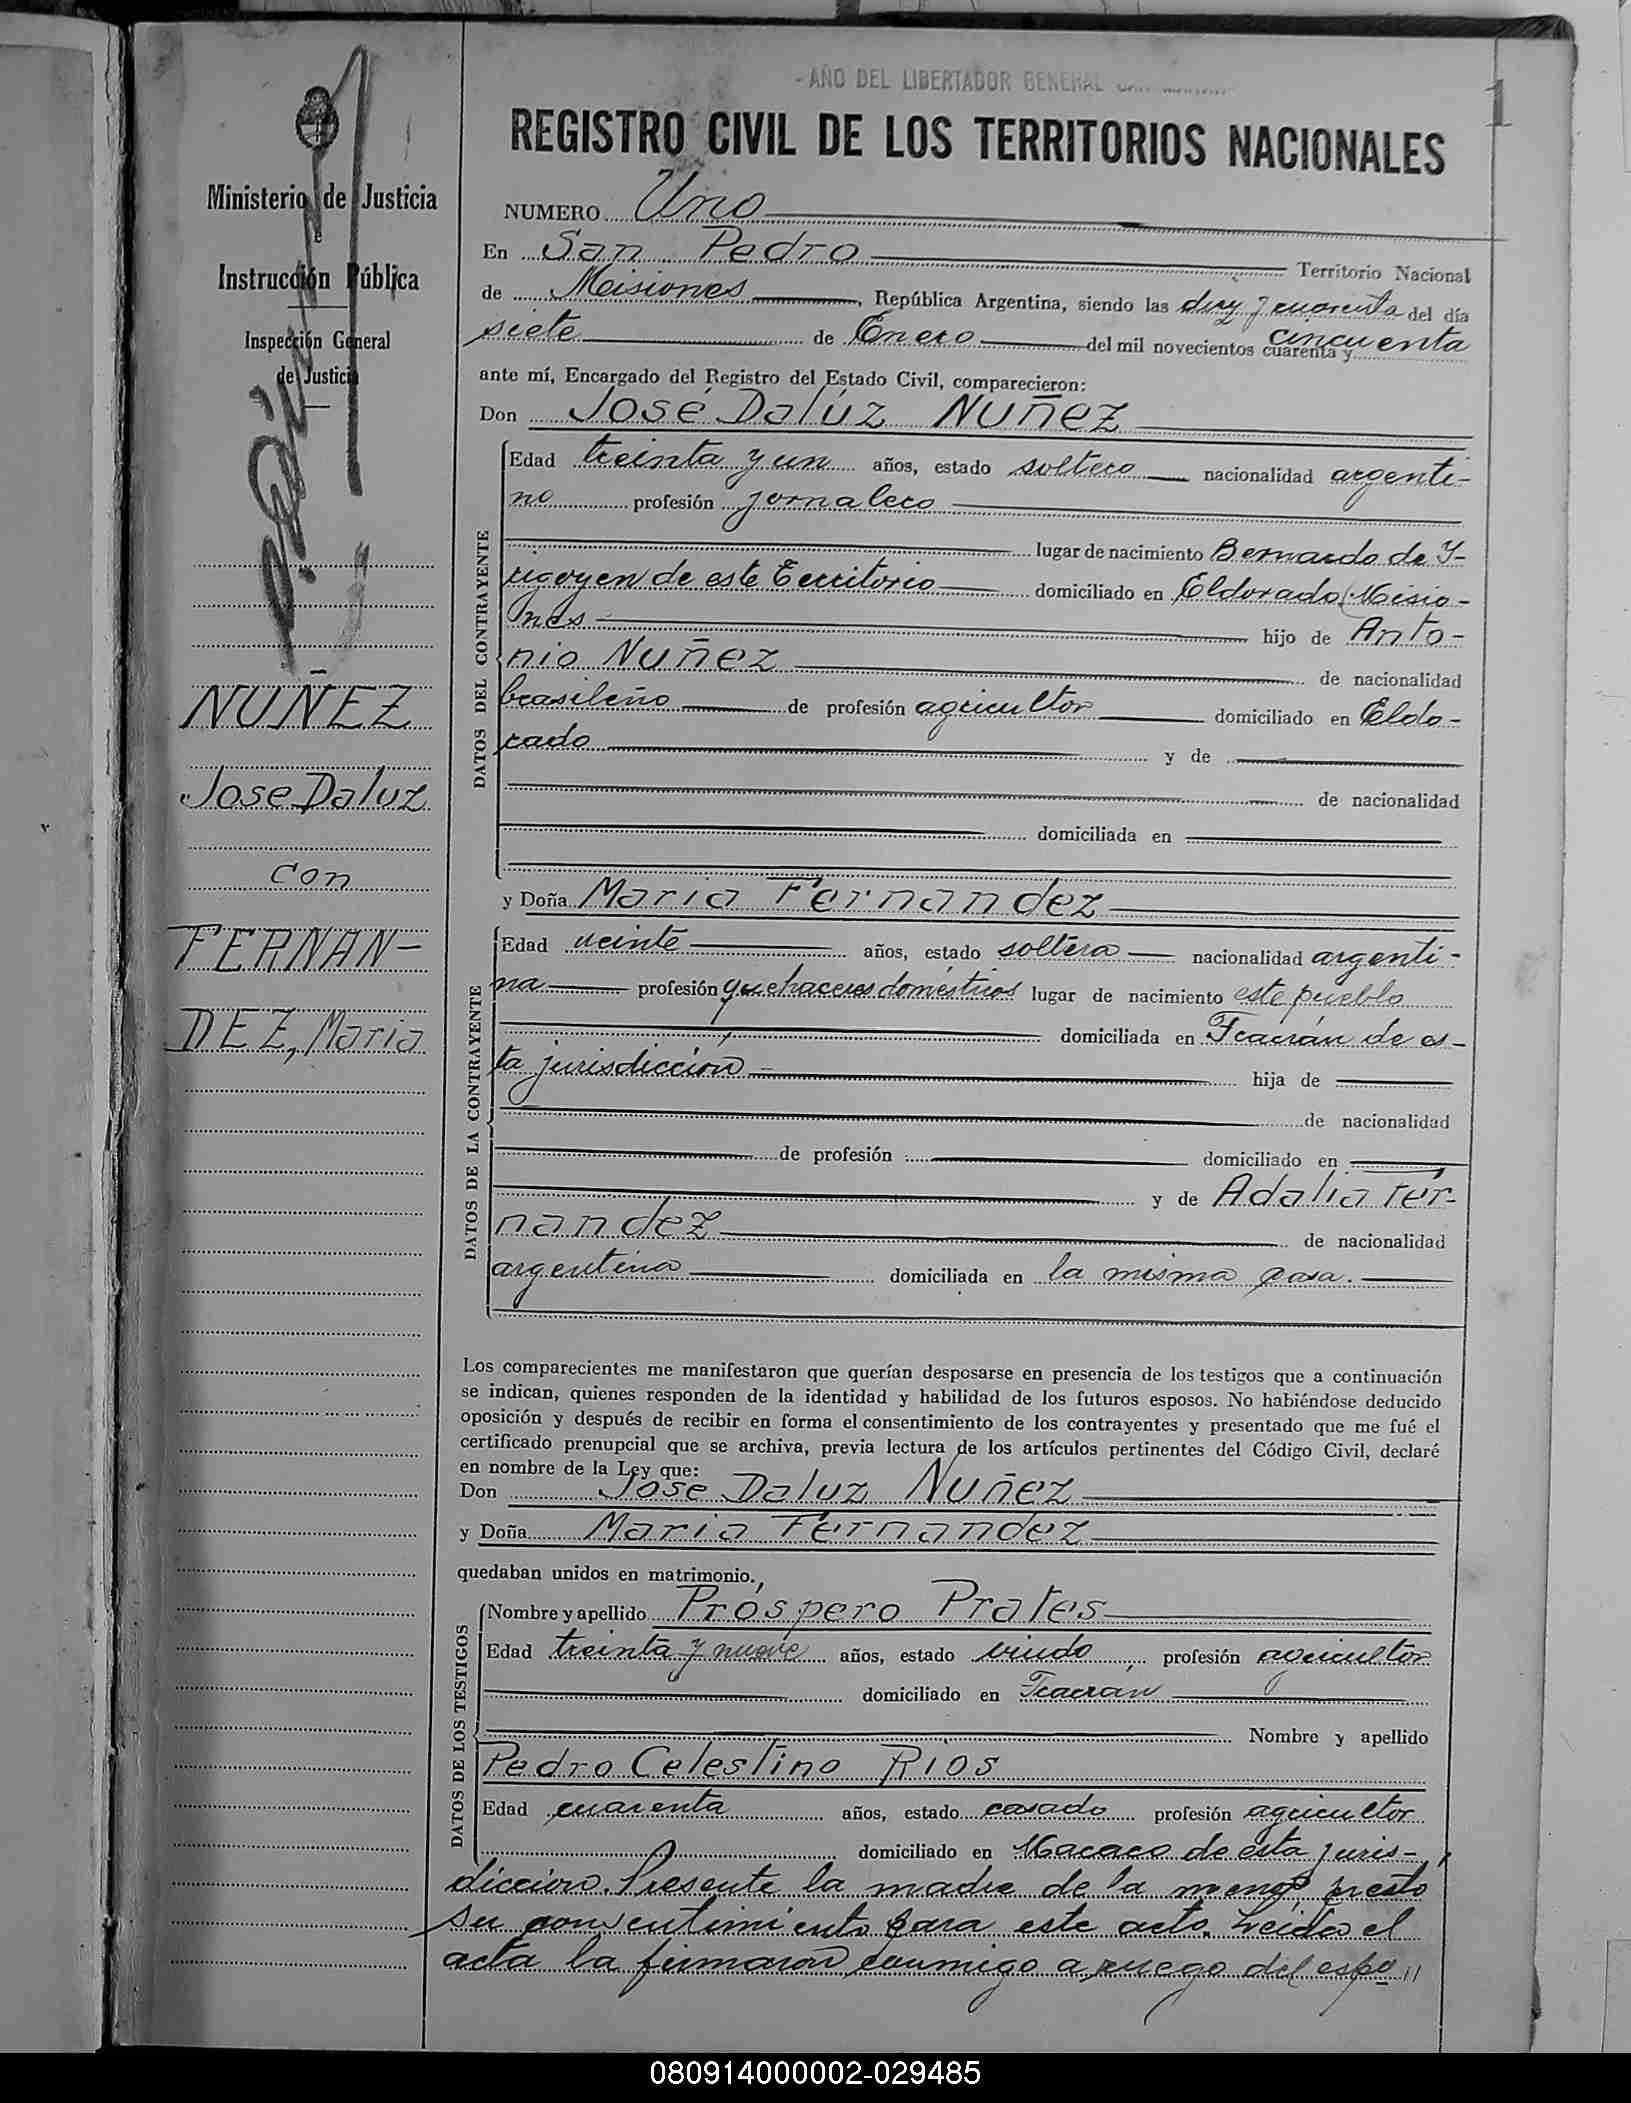 - AÑO DEL LIBERTADOR GENERAL
1
REGISTRO CIVIL DE LOS TERRITORIOS NACIONALES
Ministerio de Justicia
e
Instrucción Pública
Inspección General
de Justicia
NUÑEZ
Jose Daluz
con
FERNAN-
DEZ, Maria
NUMERO Uno
En San Pedro Territorio Nacional
de Misiones, República Argentina, siendo las diez y cuarenta del día
siete de Enero del mil novecientos cuarenta y cincuenta
ante mí, Encargado del Registro del Estado Civil, comparecieron:
Don José Dalúz Nuñez
DATOS DEL CONTRAYENTE
Edad treinta y un años, estado soltero nacionalidad argenti-
no profesión jornalero
lugar de nacimiento Bernardo de Y-
rigoyen de este Territorio domiciliado en Eldorado (Misio-
nes hijo de Anto-
nio Nuñez de nacionalidad
brasileño de profesión agricultor domiciliado en Eldo-
rado y de
de nacionalidad
domiciliada en
y Doña Maria Fernandez
DATOS DE LA CONTRAYENTE
Edad veinte años, estado soltera nacionalidad argenti-
na profesión quehaceres domésticos lugar de nacimiento este pueblo
domiciliada en Fracrán de es-
ta jurisdicción hija de
de nacionalidad
de profesión domiciliado en
y de Adalia Fer-
nandez de nacionalidad
argentina domiciliada en la misma casa.
Los comparecientes me manifestaron que querían desposarse en presencia de los testigos que a continuación
se indican, quienes responden de la identidad y habilidad de los futuros esposos. No habiéndose deducido
oposición y después de recibir en forma el consentimiento de los contrayentes y presentado que me fué el
certificado prenupcial que se archiva, previa lectura de los artículos pertinentes del Código Civil, declaré
en nombre de la Ley que:
Don Jose Daluz Nuñez
y Doña Maria Fernandez
quedaban unidos en matrimonio.
DATOS DE LOS TESTIGOS
Nombre y apellido Próspero Prates
Edad treinta y nueve años, estado viudo profesión agricultor
domiciliado en Fracrán
Nombre y apellido
Pedro Celestino Rios
Edad cuarenta años, estado casado profesión agricultor
domiciliado en Macaco de esta juris-
dicción. Presente la madre de la menor, presto
su consentimiento para este acto. Leida el
acta la firmaron conmigo a ruego del espo //
080914000002-029485